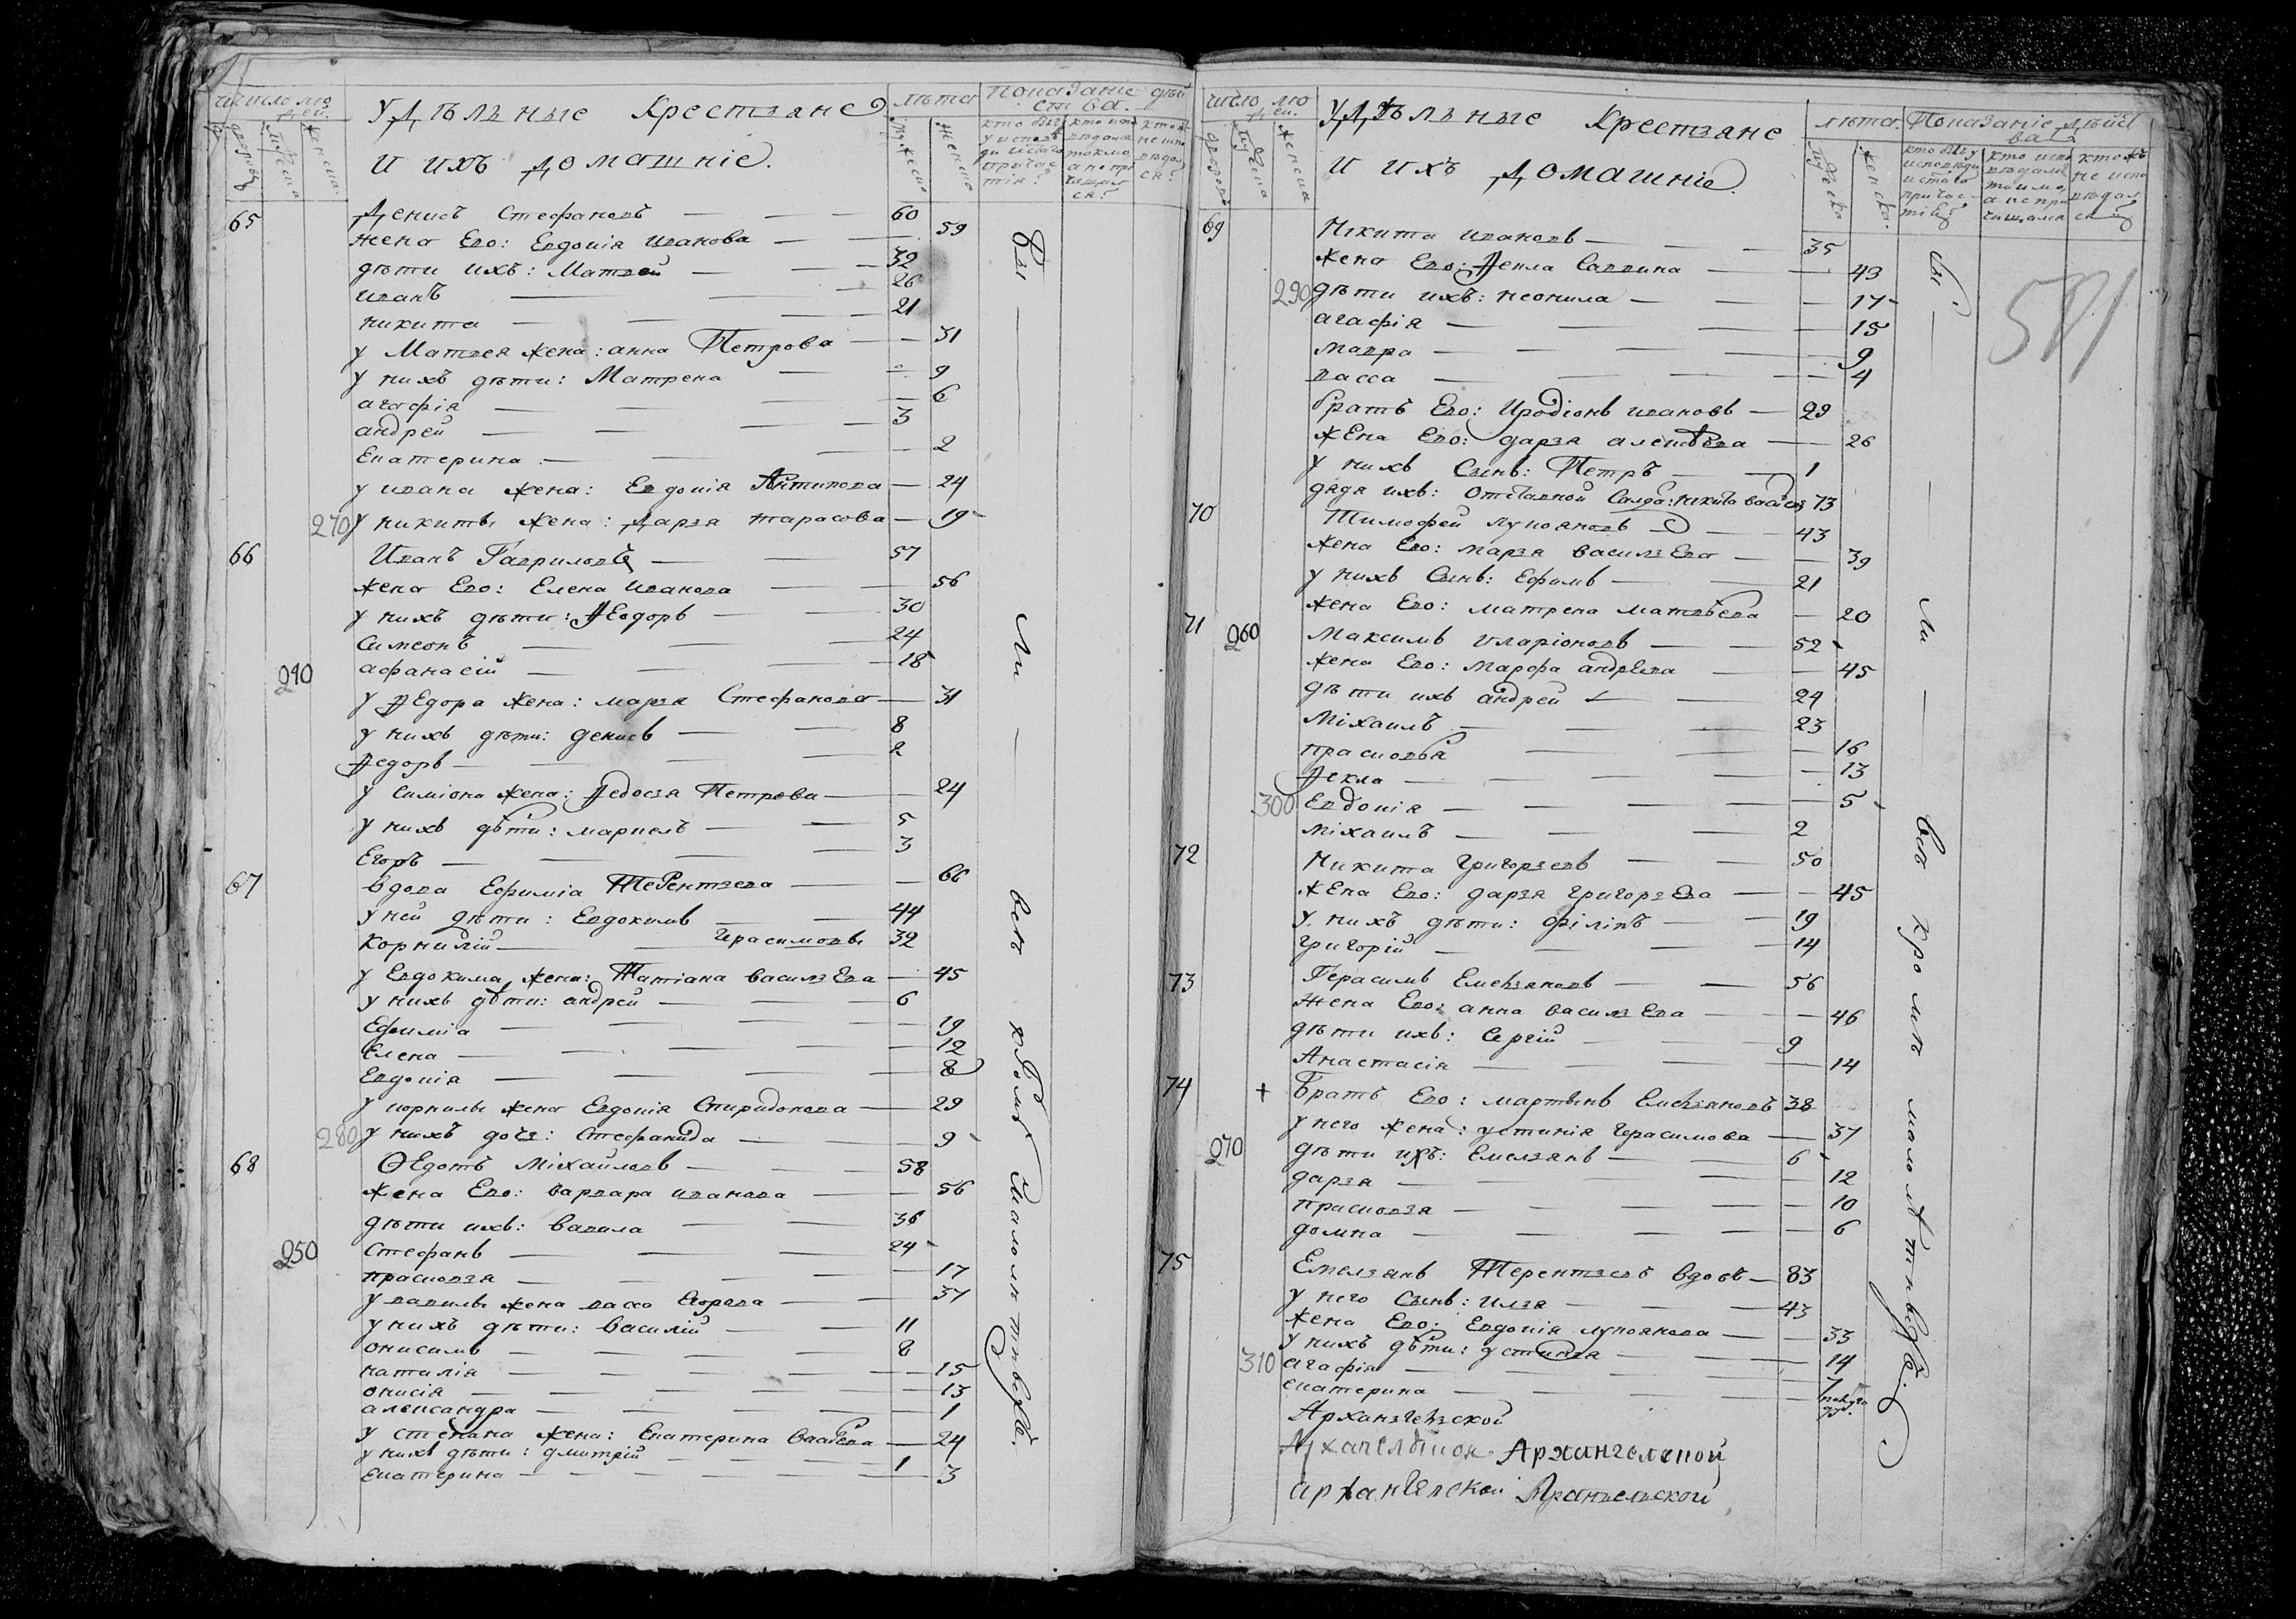 число лю
дей.
дворовъ
мужеска
женска.
Удѣльные Крестьяне
и ихъ домашніе.
лѣта
мужеска
женска
Показаніе дѣй
ства.
кто былъ
у исповѣ
ди и свято
причас
тія?
кто испо
вѣдался
токмо
а не при
чащал
ся?
кто ж
не испо
вѣдал
ся?
65 Денисъ Стефановъ — — — 60
жена Ево: Евдокія иванова — — 59
дѣти ихъ: Матвей — — — 32
иванъ — — — 26
никита — — — 21
у Матвея жена: анна Петрова — — 31
у нихъ дѣти: Матрена — — 9
агафія — — — 6
андрей — — — 3
Екатерина — — — 2
у ивана жена: Евдокія Антипова — 24
270 у никиты жена: Дарья тарасова — 19
66 Иванъ Гавриловъ — — 57
жена Ево: Елена иванова — — 56
у нихъ дѣти: Ѳеодоръ — — 30
симеонъ — — — 24
240 афанасій — — — 18
у Ѳедора жена: марья Стефанова — 31
у нихъ дѣти: денисъ — — 8
Ѳедоръ — — — 2
у симіона жена: Ѳедосья Петрова — 24
у нихъ дѣти: маркелъ — — 5
Егоръ — — — 3
67 вдова Ефиміа Терентьева — — 66
у ней дѣти: Евдокимъ — — 44
Корнилій — — Герасимовы 32
у Евдокима жена: Татіана васильЕва — 45
у нихъ дѣти: андрей — — — 6
Ефиміа — — — 19
Елена — — — 12
Евдокія — — — 8
у корнилы жена Евдокія Спиридонова — 29
280 у нихъ дочь: Стефанида — — — 9
68 Ѳедотъ Міхайловъ — — — 58
жена Ево: варвара иванова — — 56
дѣти ихъ: вавила — — 36
250 Стефанъ — — — 24
прасковья — — — 17
у вавилы жена васса Егорева — — 37
у нихъ дѣти: василій — — 11
онисимъ — — — 8
наталія — — — 15
онисія — — — 13
александра — — — 1
у степана жена: Екатерина васильева — 24
у нихъ дѣти: дмитрій — — — 1
екатерина — — — 3
Бы — ли — всѣ кромѣ малолѣтнвхъ.
число лю
дей.
дворовъ
мужеска
женска
Удѣльные Крестьяне
и ихъ домашніе.
лѣта.
мужеска
женска.
Показаніе дѣйст
ва
кто былъ у
исповѣди
и свято
причас
тія?
кто испо
вѣдался
токмо,
а не при
чащался
кто жъ
не испо
вѣдал
ся
581
69 Никита ивановъ — — — 35
жена Ево: Ѳекла Саввина — — 43
290 дѣти ихъ: неонила — — — 17
агафія — — — 15
мавра — — — 9
васса — — — 4
братъ Ево: Иродіонъ ивановъ — 29
жЕна Ево: дарья алексѣева — 26
у нихъ Сынъ: Петръ — — 1
дядя ихъ: отставной Салда: никита васильев 73
70 Тимофей лукояновъ — 43
жена Ево: марья васильЕва — — 39
у нихъ Сынъ: Ефимъ — — 21
жена Ево: матрена матвѣева — 20
71 260 Максимъ иларіоновъ — — 52
жена Ево: марфа андреева — — 45
дѣти ихъ андрей — — 24
Міхаилъ — — — 23
прасковья — — — 16
Ѳекла — — — 13
300 Евдокія — — — 5
міхаилъ — — — 2
72 Никита Григорьевъ — — 50
жЕна Ево: дарья григорьЕва — — 45
у нихъ дѣти: філіпъ — — 19
григорій — — — 14
73 Герасимъ Емельяновъ — — 56
жена Ево: анна васильЕва — — 46
дѣти ихъ: Сергій — — 9
Анастасія — — — 14
74 + Братъ Ево: мартынъ Емельяновъ 38
у него жена: устинія герасимова — 37
270 дѣти ихъ: Емельянъ — — 6
дарья — — — 12
прасковья — — — 10
домна — — — 6
75 Емельянъ Терентьевъ вдовъ — 83
у него Сынъ: илья — — 43
жена Ево: Евдокія лукоянова — — 33
у нихъ дѣти: устинья — — 14
310 агафія — — — 7
екатерина — — —
Бы — ли — всѣ кромѣ малолѣтнвхъ.
Арханзгельской
Архангельской
Архангельской